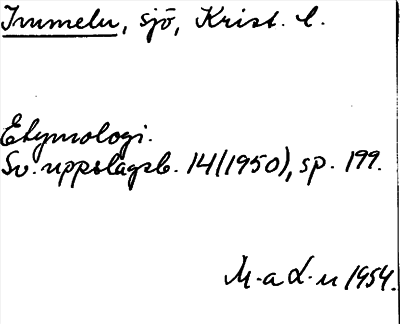 Immeln, sjö, Krist. l.
Etymologi.
Sv. uppslagsb. 14(1950), sp. 199.
M-a L-n 1954.